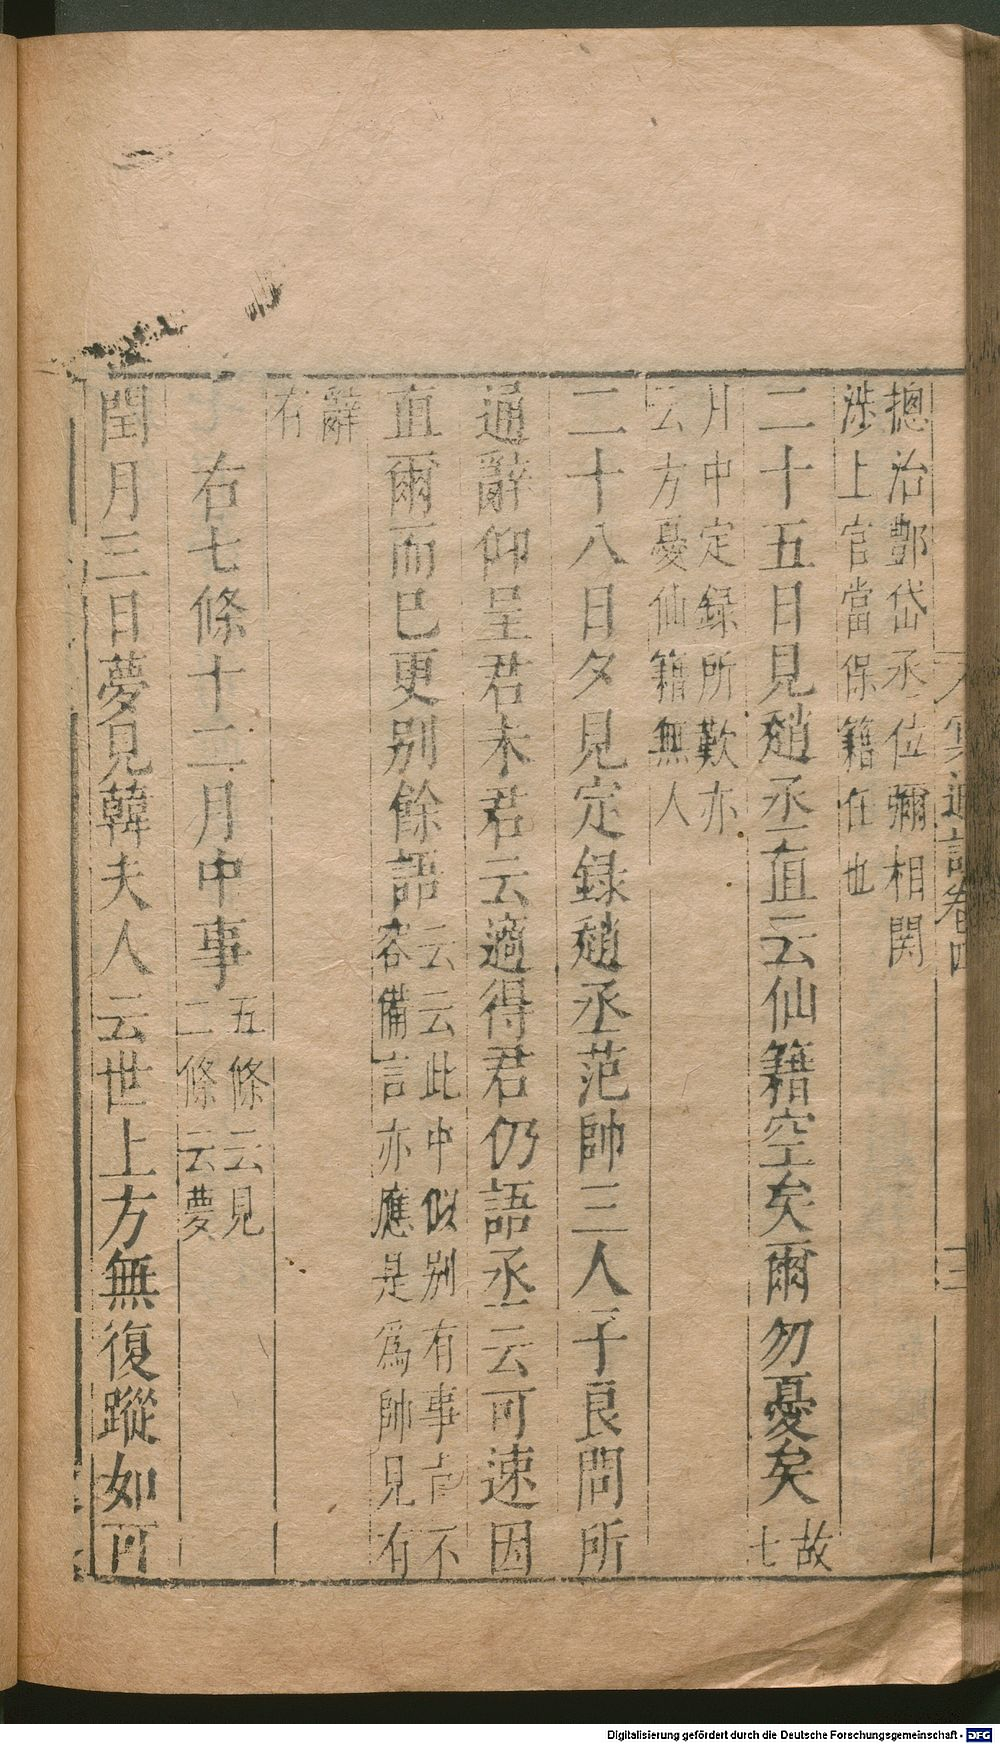 冥通記卷四
三
總治酆岱丞位彌相関
涉上官當保籍任也
二十五日見趙丞直云仙籍空矣爾勿憂矣故七
月中定録所歎亦
云方憂仙籍無人
二十八日夕見定録趙丞范帥三人子良問所
通辭仰呈君未君云適得君仍語丞云可速因
直爾而已更別餘語云云此中似別有事 不
容備言亦應是為帥見有
辭
右
右七條十二月中事五條云見
二條云夢
閏月三日夢見韓夫人云世上方無復蹤如可
Digitalisierung gefördert durch die Deutsche Forschungsgemeinschaft - DFG